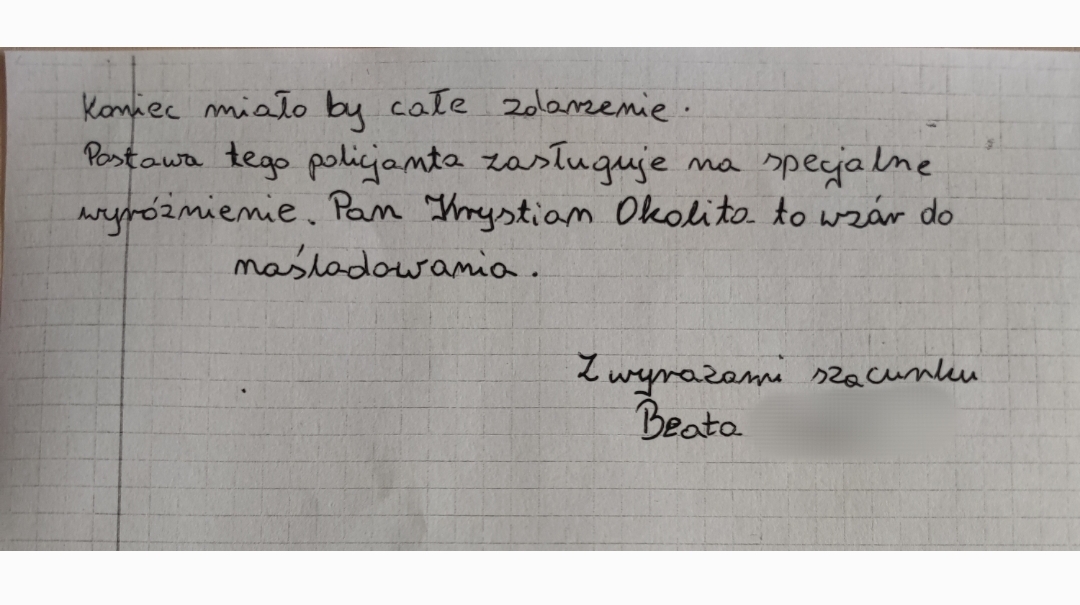 Koniec miało by całe zdarzenie.
Postawa tego policjanta zasługuje na specjalne
wyróżnienie. Pan Krystian Okolita to wzór do
naśladowania.
Z wyrazami szacunku
Beata